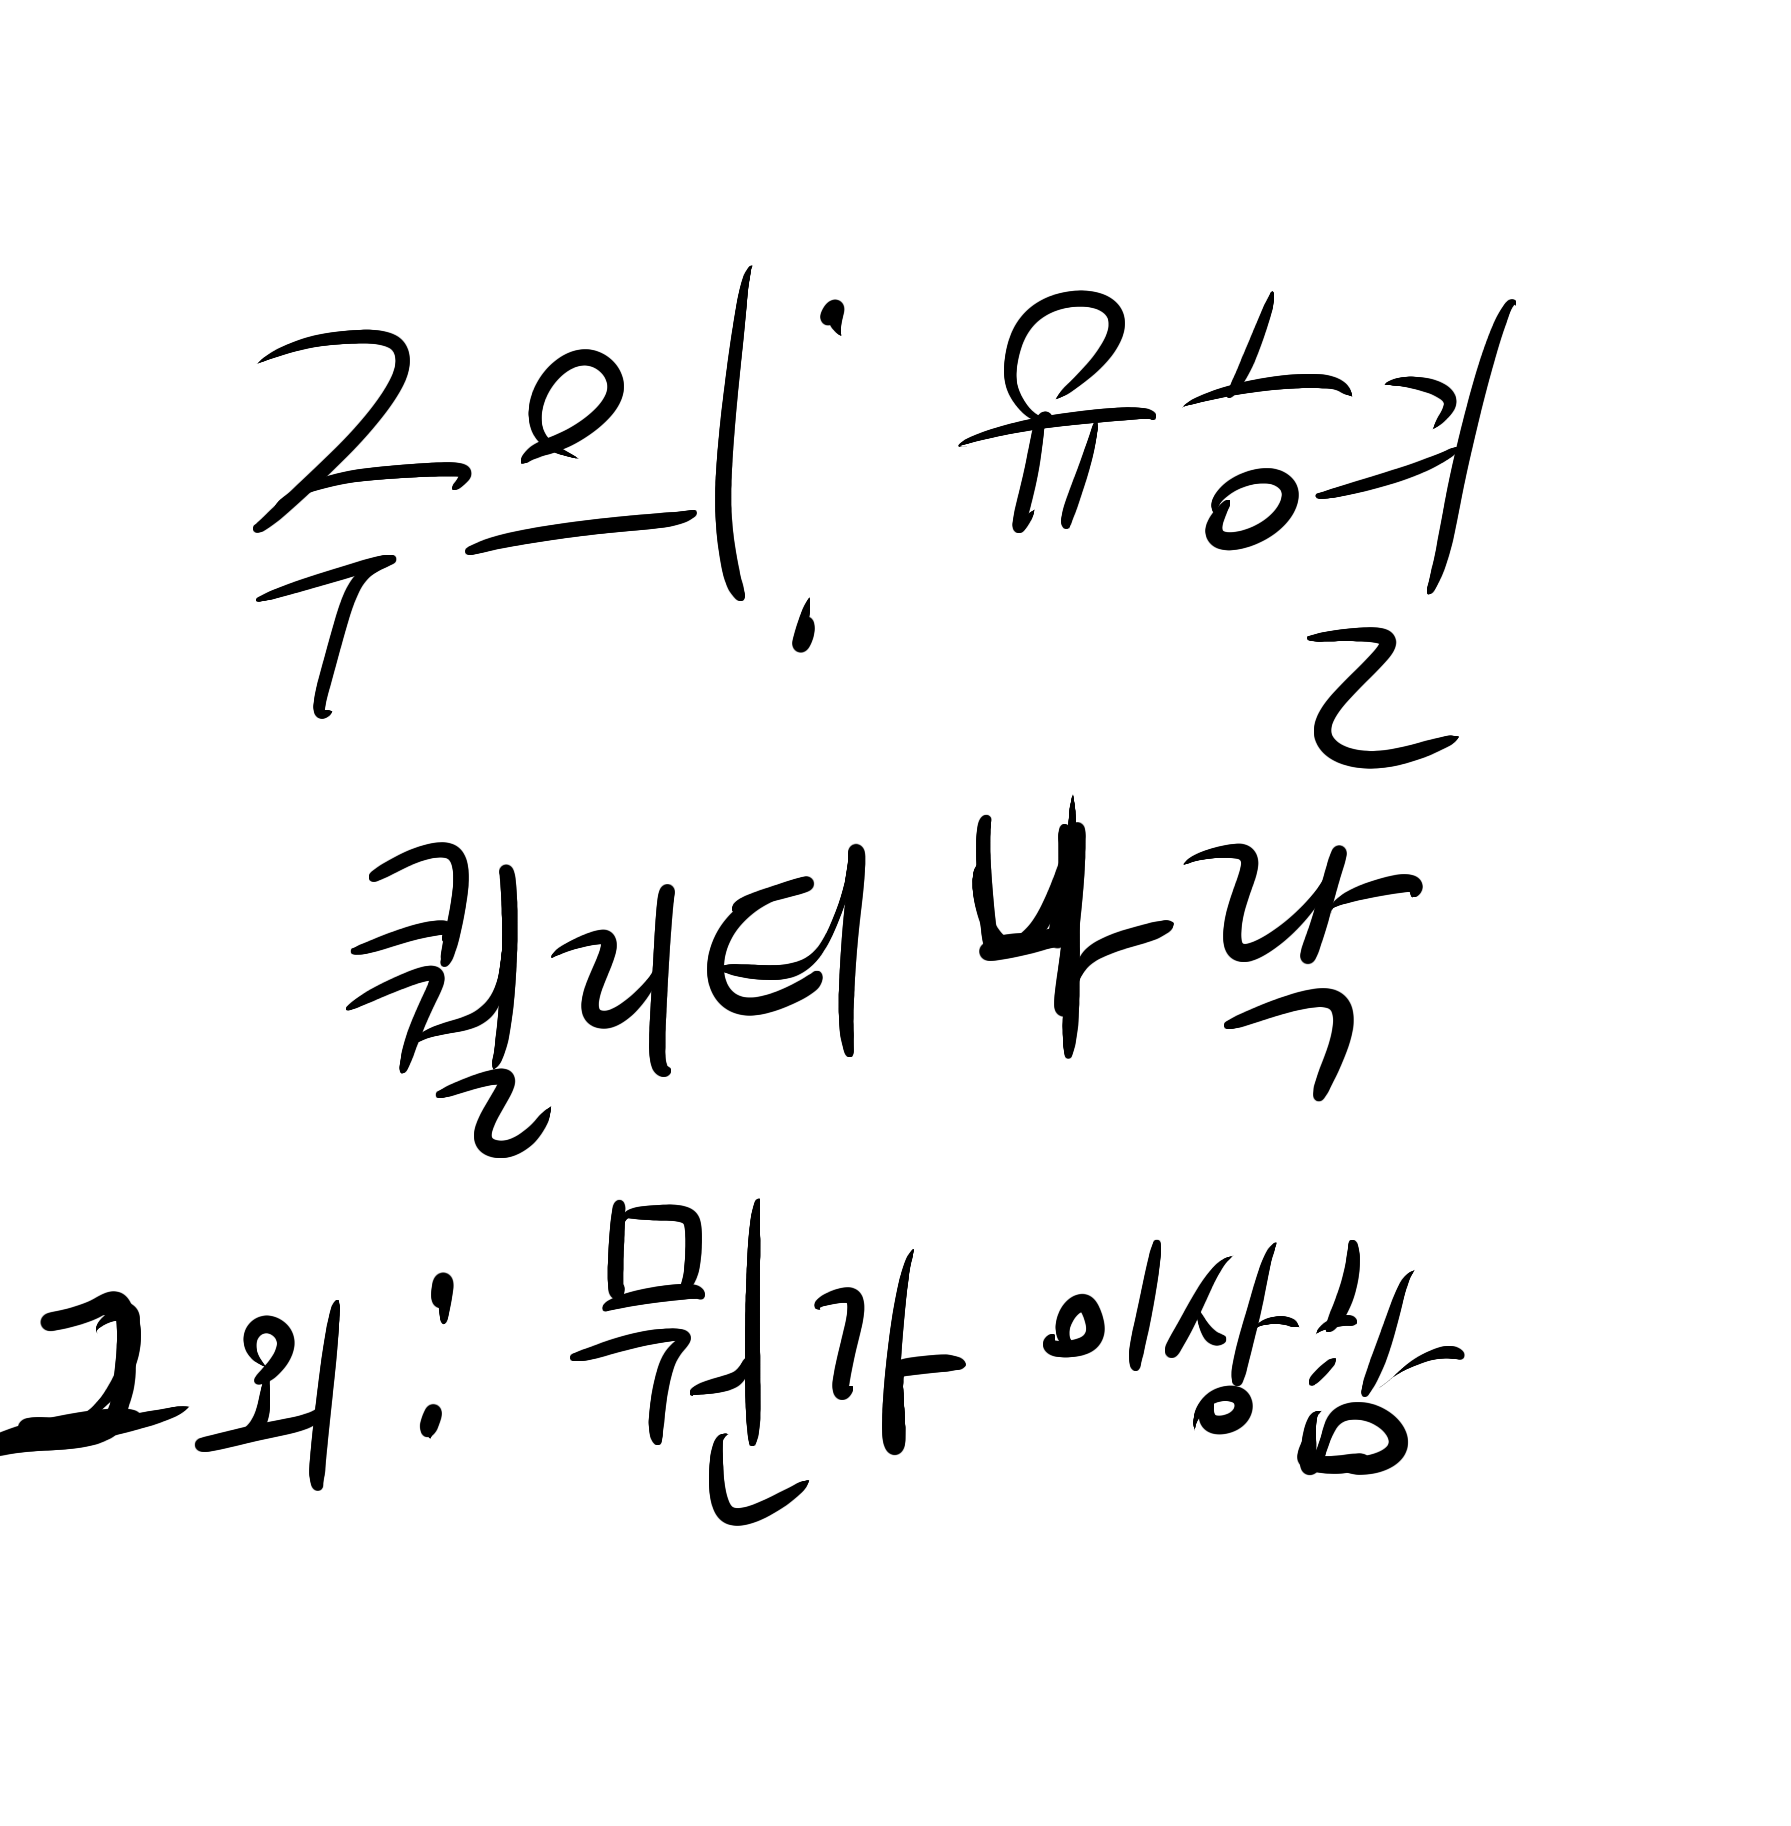 주의: 유혈
퀄리티 나락
그외: 뭔가 이상함